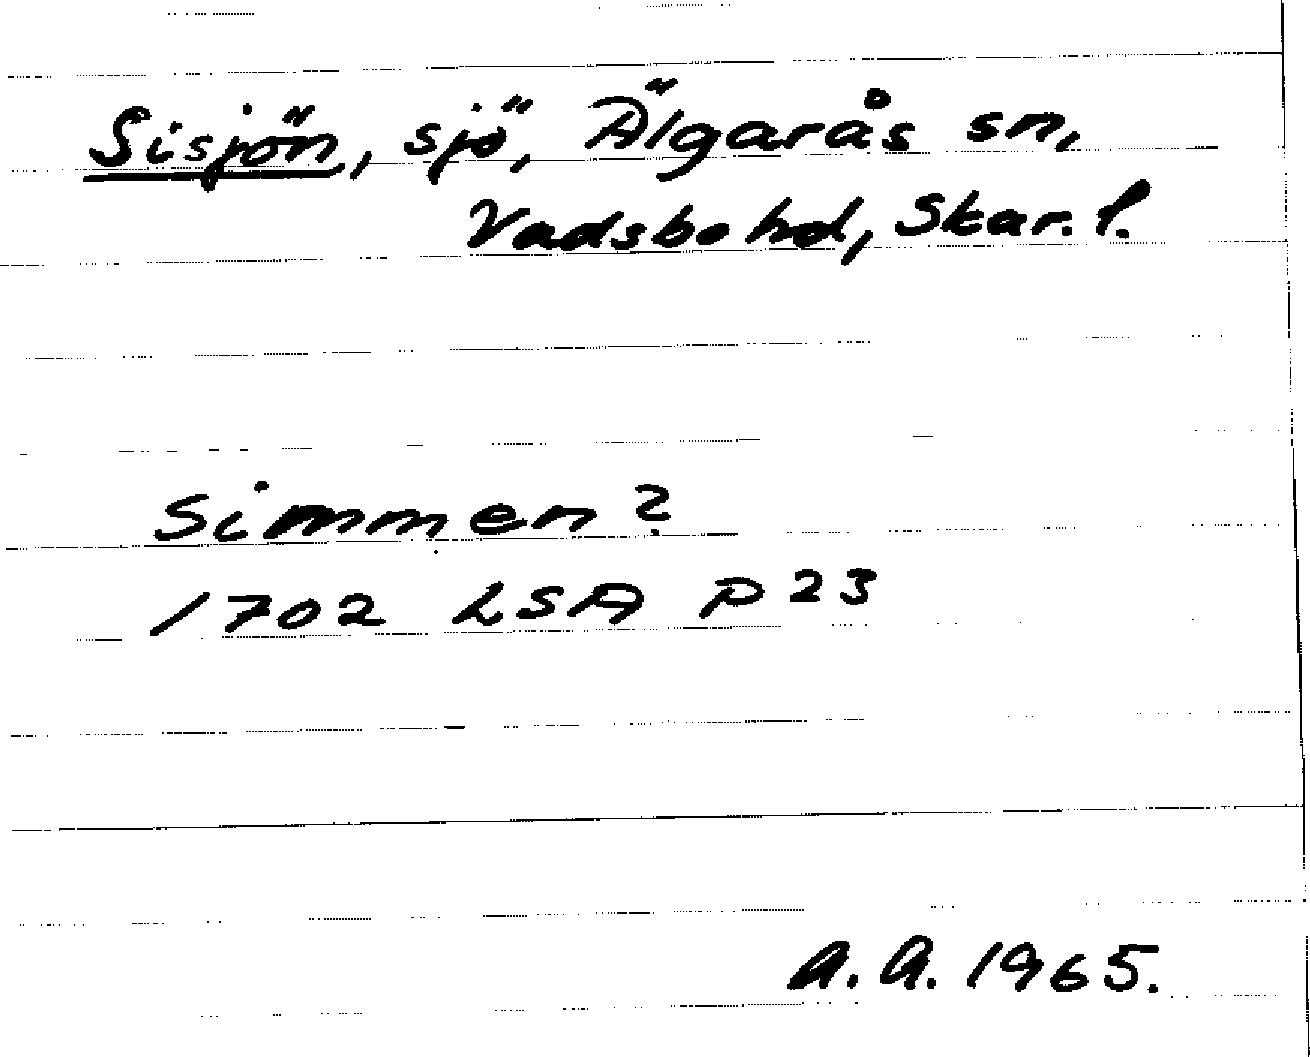 Sisjön, sjö, Älgarås sn,
Vadsbo hd, Skar. l.
Simmen?
1702 LSA P 23
A. A. 1965.